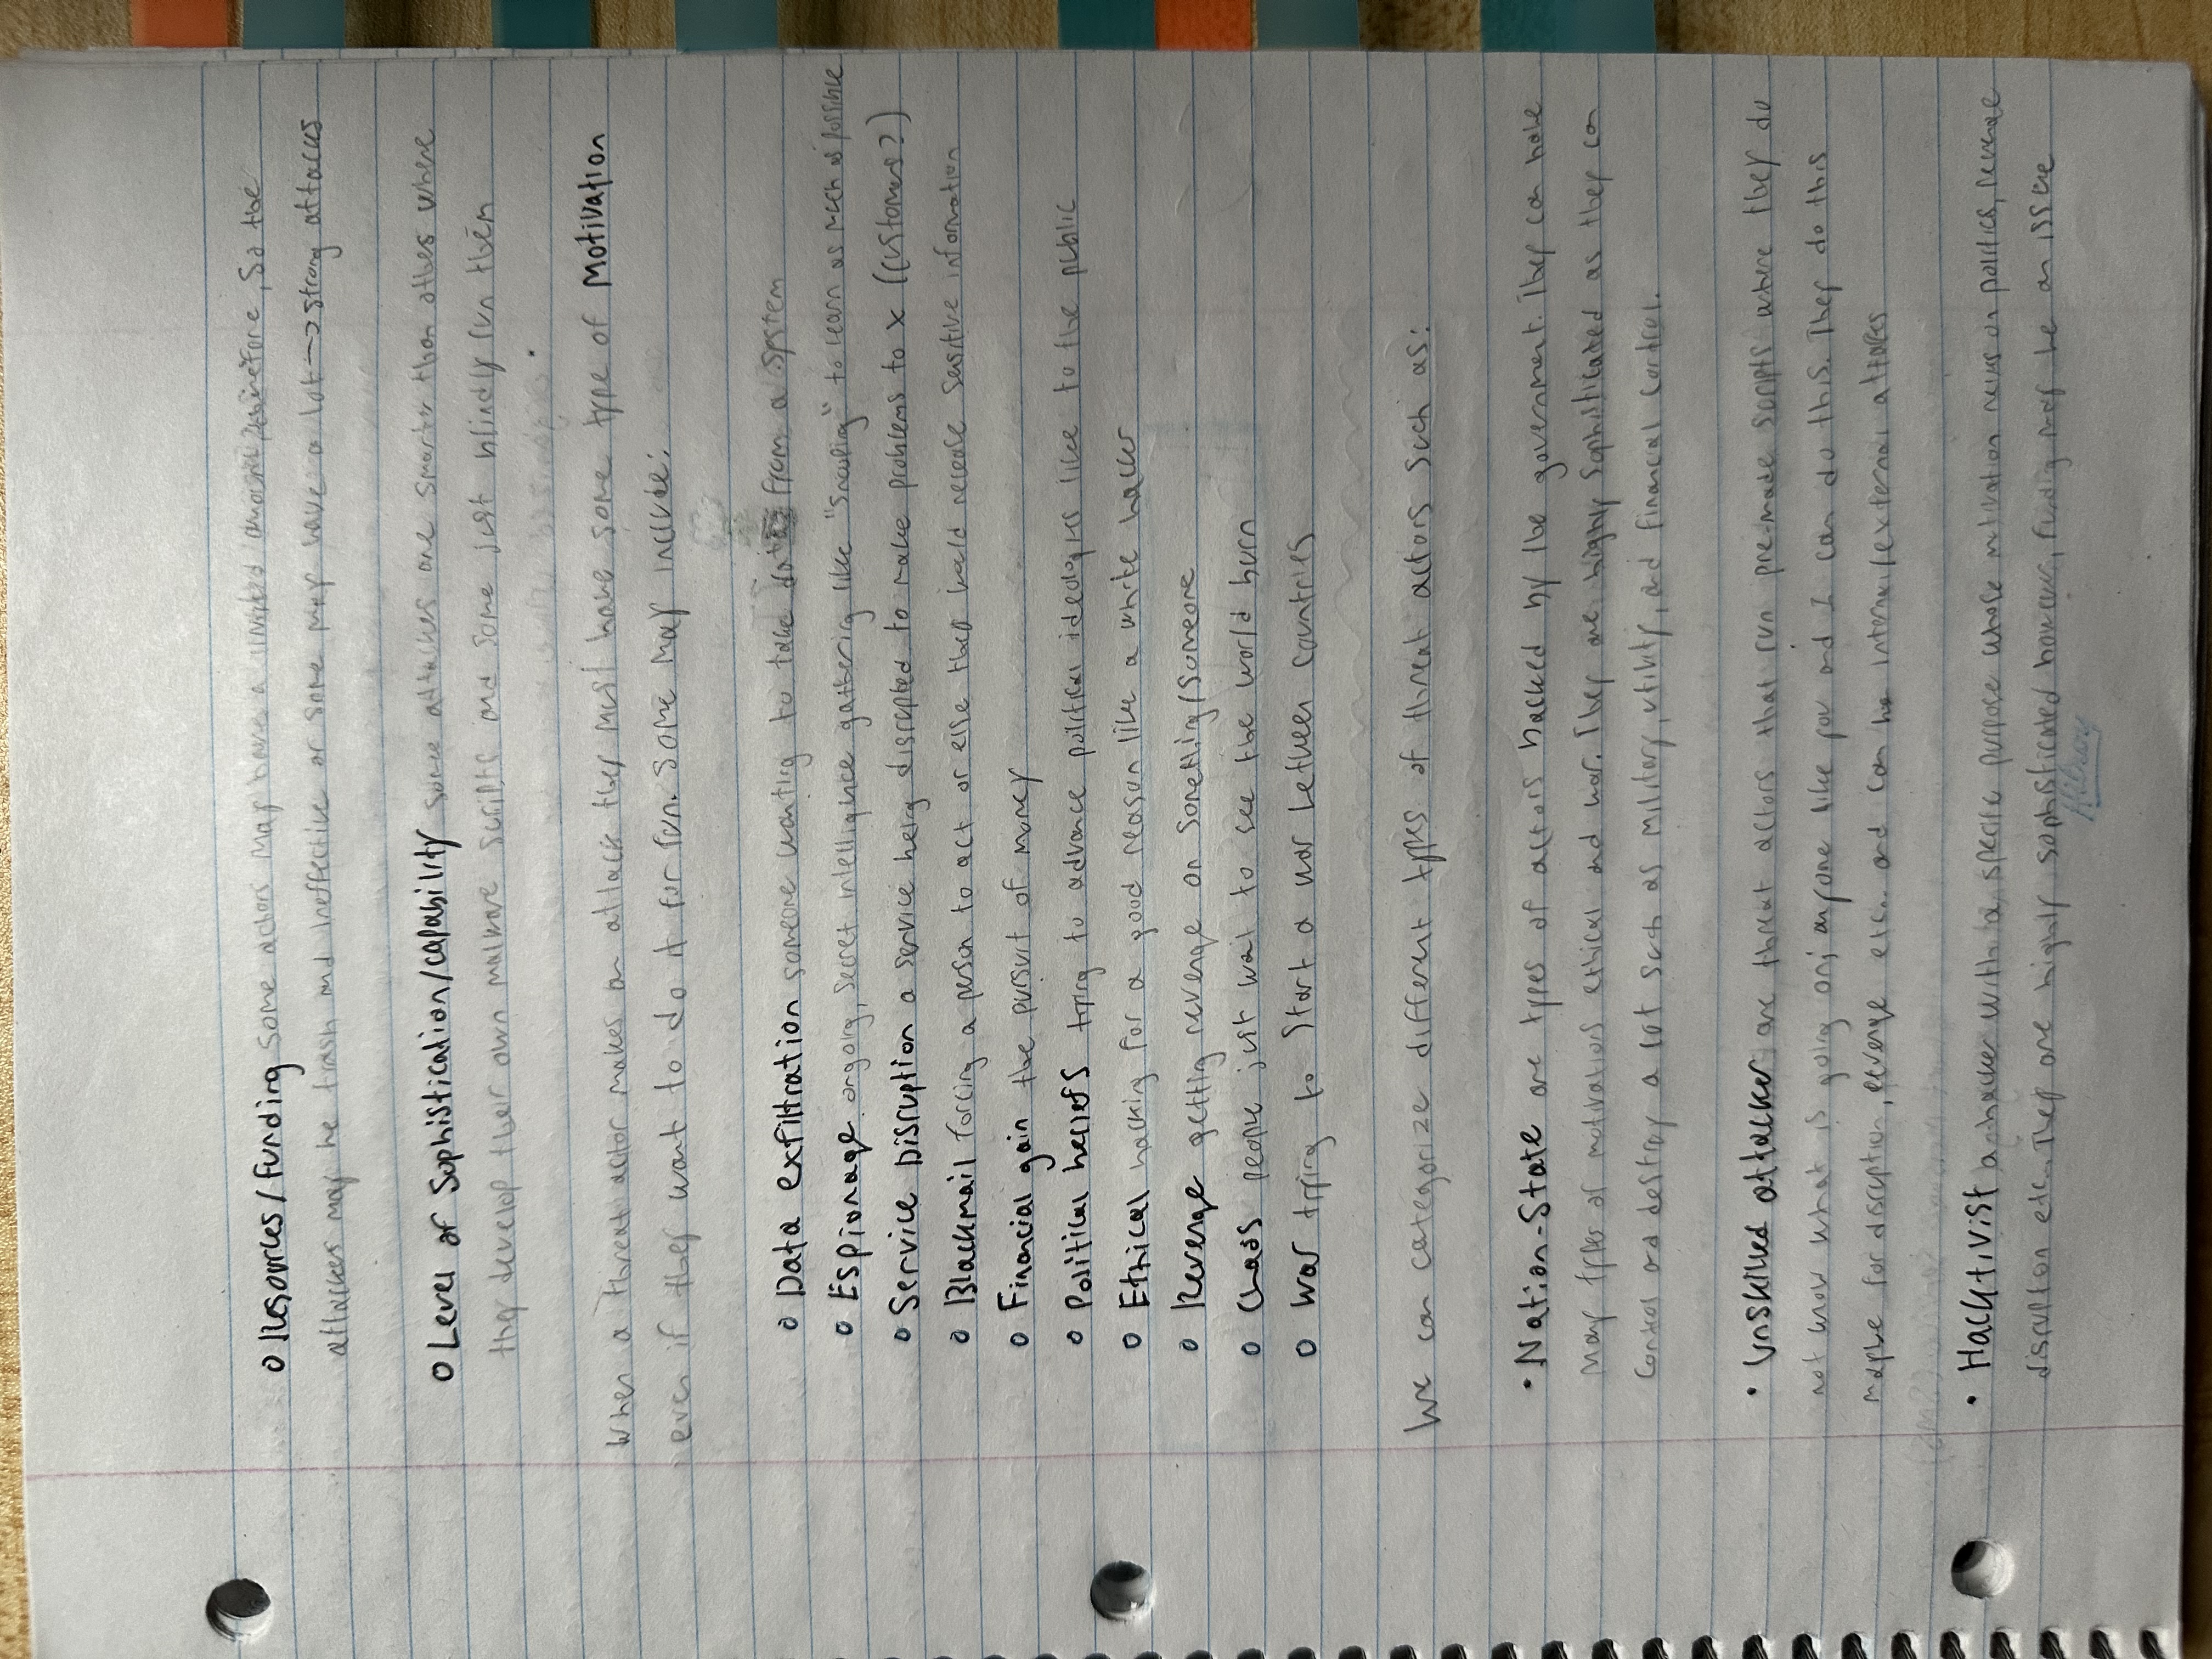 o Resources/Funding some actors may have a limited amount, therefore, so the
attackers may be trash and ineffective or some may have a lot → strong attacks
o Level of Sophistication/capability some attackes are smarter than othes where
they develop their own malware scripts and some just blindly run them
When a threat actor makes an attack they must have some type of Motivation
even if they want to do it for fun. Some may include:
o Data exfiltration someone wanting to take data from a system
o Espionage ongoing, secret intelligence gathering like "snooping" to learn as much as possible
o Service Disruption a service being disrupted to make problems to x (customers?)
o Blackmail forcing a person to act or else they would release sensitive information
o Financial gain the pursuit of money
o Political beliefs trying to advance political ideologies like to the public
o Ethical hacking for a good reason like a white hacker
o Revenge getting revenge on something/someone
o Chaos people just want to see the world burn
o War trying to start a war between countries
We can categorize different types of threat actors such as:
• Nation-State are types of actors backed by the government. They can have
many types of motivations ethical and war. They are highly sophisticated as they can
control and destroy a lot such as military, utility, and financial control.
• Unskilled attacker are threat actors that run pre-made scripts where they do
not know what is going on; anyone like you and I can do this. They do this
maybe for disruption, revenge etc.. and can be internal/external attacks
• Hacktivist a hacker with a specific purpose whose motivation relies on politics, revenge
disruption etc.. They are highly sophisticated however, funding may be an issue